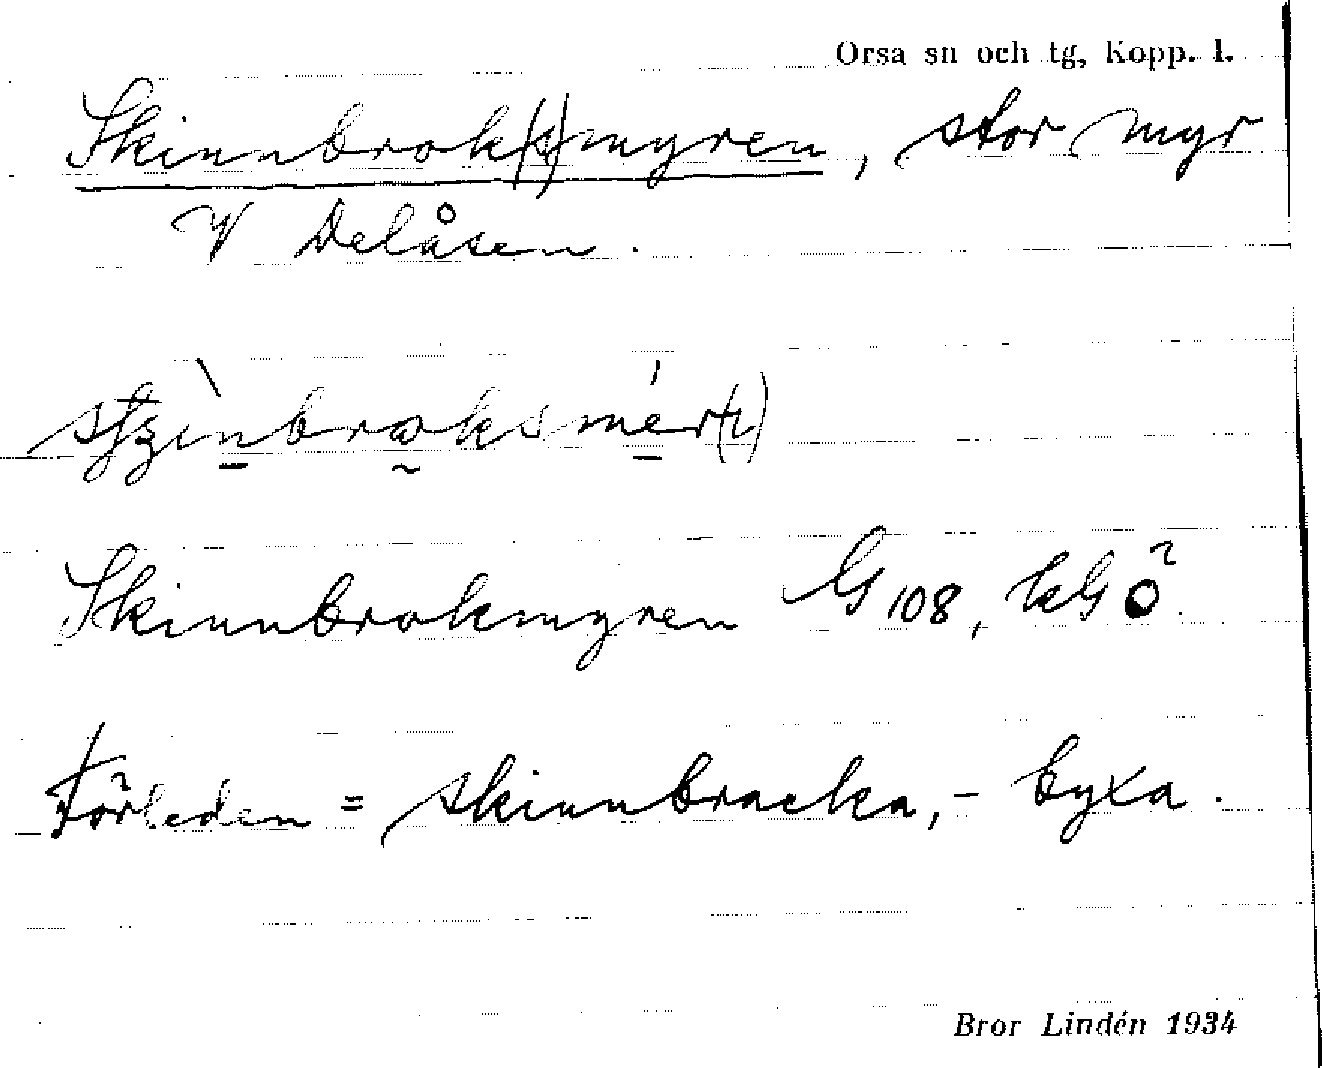 Orsa sn och tg, Kopp. l.
Skinnbrok(s)myren, stor myr
V Delåsen.
Skinnbrokmyren G 108, kGÖ.
Förleden = skinnbracka, - byxa.
Bror Lindén 1934